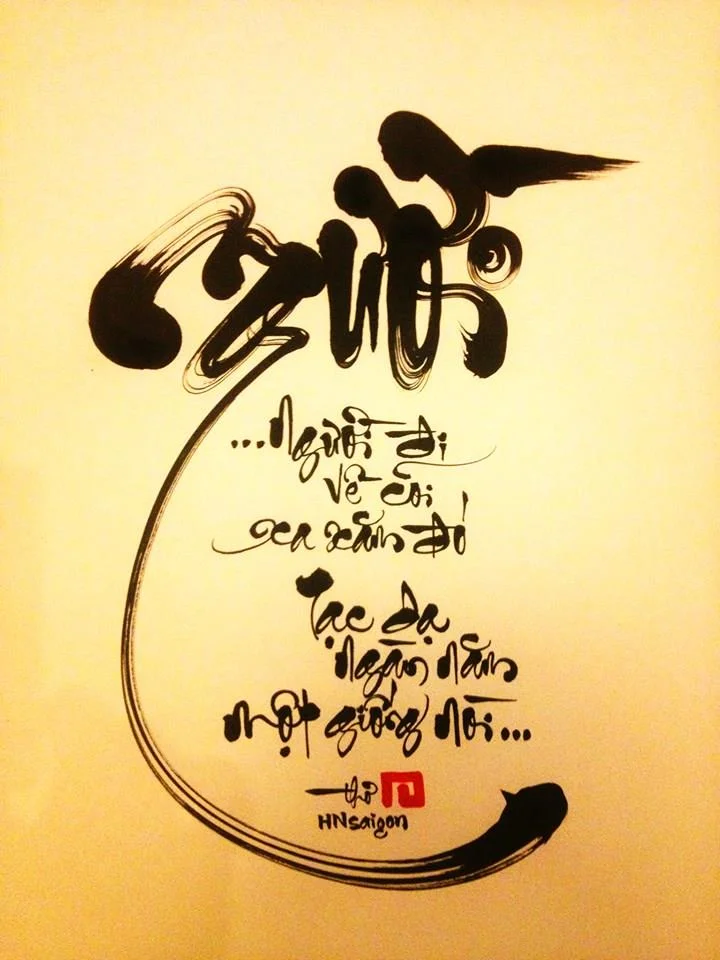 Người
...Người đi
về cõi
xa xăm đó
Tạc dạ
ngàn năm
một giống nòi...
thơ
HNsaigon